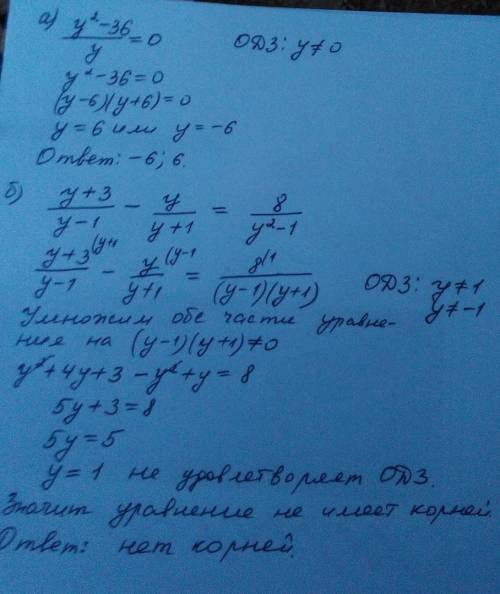 а) (y²-36)/y = 0 ОДЗ: y≠0
y²-36=0
(y-6)(y+6)=0
y=6 или y=-6
Ответ: -6; 6.
б) (y+3)/(y-1) - y/(y+1) = 8/(y²-1)
(y+3)/(y-1) (y+1 - y/(y+1) (y-1 = 8/((y-1)(y+1)) (1 ОДЗ: y≠1
y≠-1
Умножим обе части уравне-
ния на (y-1)(y+1)≠0
y²+4y+3-y²+y=8
5y+3=8
5y=5
y=1 не удовлетворяет ОДЗ.
Значит уравнение не имеет корней.
Ответ: нет корней.